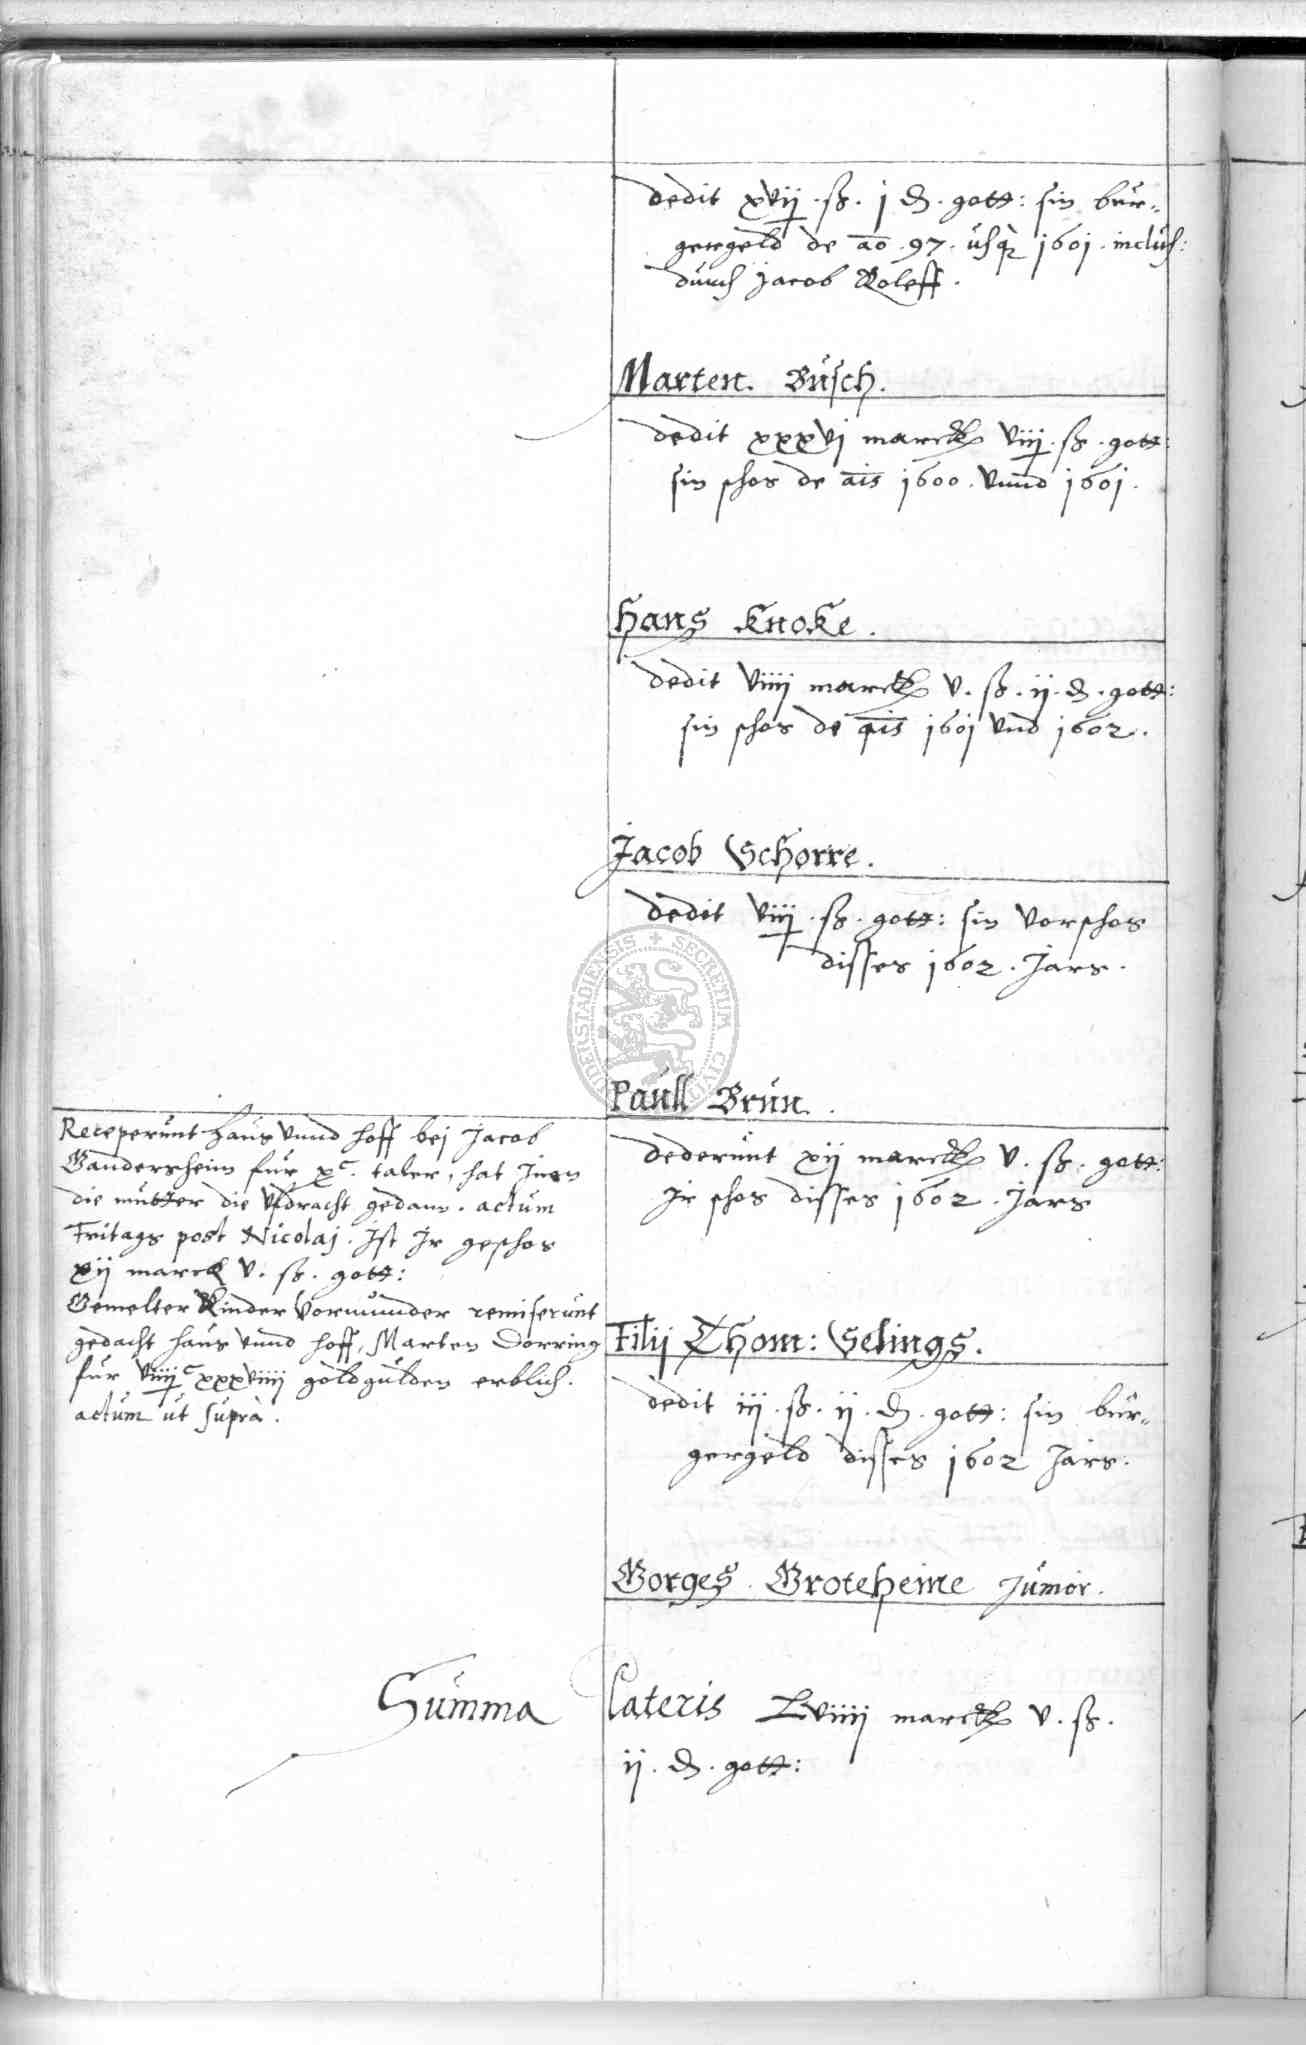 dedit xvij. ß. j ₰. gott: sin bür„
gergeld de ao. 97. usq 1601. inclus:
durch Jacob Roleff.
Marten. Büsch.
dedit xxxvj marck viij. ß. gott:
sin schos de ais 1600. vnnd 1601.
Hans Knoke.
dedit viiij marck v. ß. ij. ₰. gott:
sin schos de ais 1601 vnd 1602.
Jacob Schorre.
dedit viij. ß. gott: sin vorschos
disses 1602. Jars.
DUDERSTADENSIS + SECRETUM CIVIT
Paull Brün.
dederunt xij marck v. ß. gott:
Jr schos disses 1602. Jars
Receperunt haus vnnd hoff bej Jacob
Gandersheim fur xc. taler, hat Jnen
die mutter die vfdracht gedann. actum
Fritags post Nicolaj. Jst Jr geschos
xij marck v. ß. gott:
Gemelter Kinder Vormunder remiserunt
gedacht haus vnnd hoff, Marten Dorring
fur viiijc xxxviiij goldgulden erblich.
actum ut supra.
Filij Thom: Selings.
dedit iij. ß. ij. ₰. gott: sin bür„
gergeld disses 1602 Jars.
Gorges. Groteheine Junior.
Summa Lateris Lviiij marck v. ß.
ij. ₰. gott: